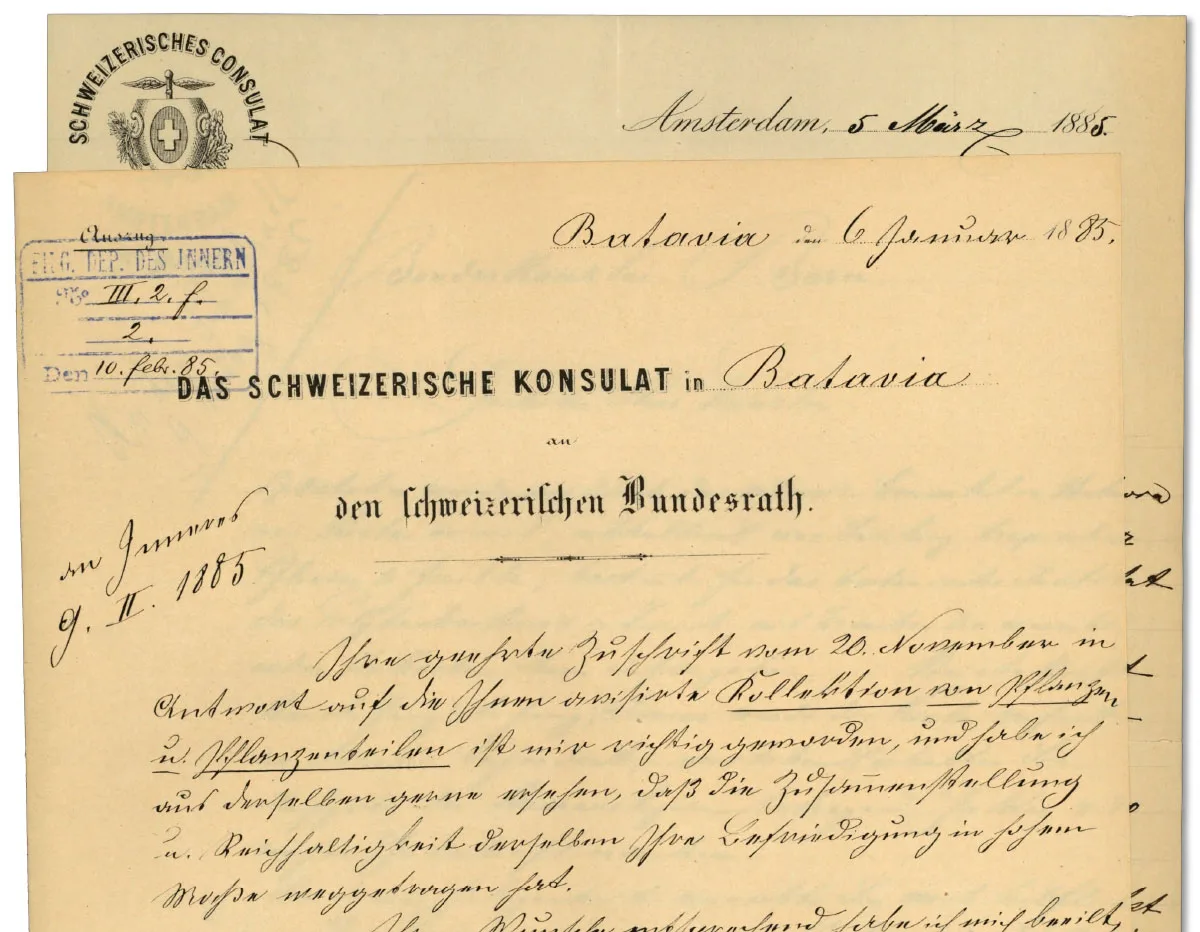 SCHWEIZERISCHES CONSULAT
Amsterdam, 5 März 1885.
Batavia den 6 Januar 1885.
Auszug
EIDG. DEP. DES INNERN
No III. 2. f.
2.
Den 10. febr. 85.
DAS SCHWEIZERISCHE KONSULAT in Batavia
an
den schweizerischen Bundesrath.
an Inneres
9. II. 1885
Ihre geehrte Zuschrift vom 20. November in
Antwort auf die Ihnen avisirte Kollektion von Pflanzen
u. Pflanzenteilen ist mir richtig geworden, und habe ich
aus derselben gerne ersehen, daß die Zusam̄enstellung
u. Reichhaltigkeit derselben Ihre Befriedigung in hohem
Maße weggetragen hat.
Wunsche entsprechend habe ich mich beeilt,